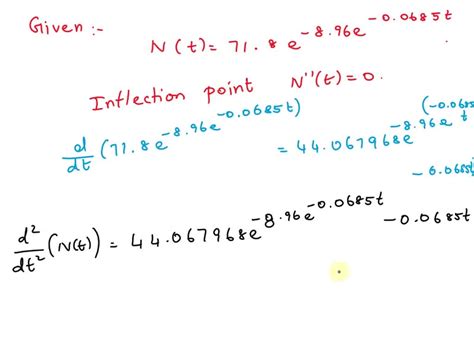 Given :-
N(t) = 71.8 e^{-8.96 e^{-0.0685t}}
Inflection point N''(t) = 0.
d/dt (71.8 e^{-8.96 e^{-0.0685t}}) = 44.067968 e^{-8.96 e^{(-0.0685 t} -0.0685
d²/dt² (N(t)) = 44.067968 e^{-8.96 e^{-0.0685t} -0.0685t}